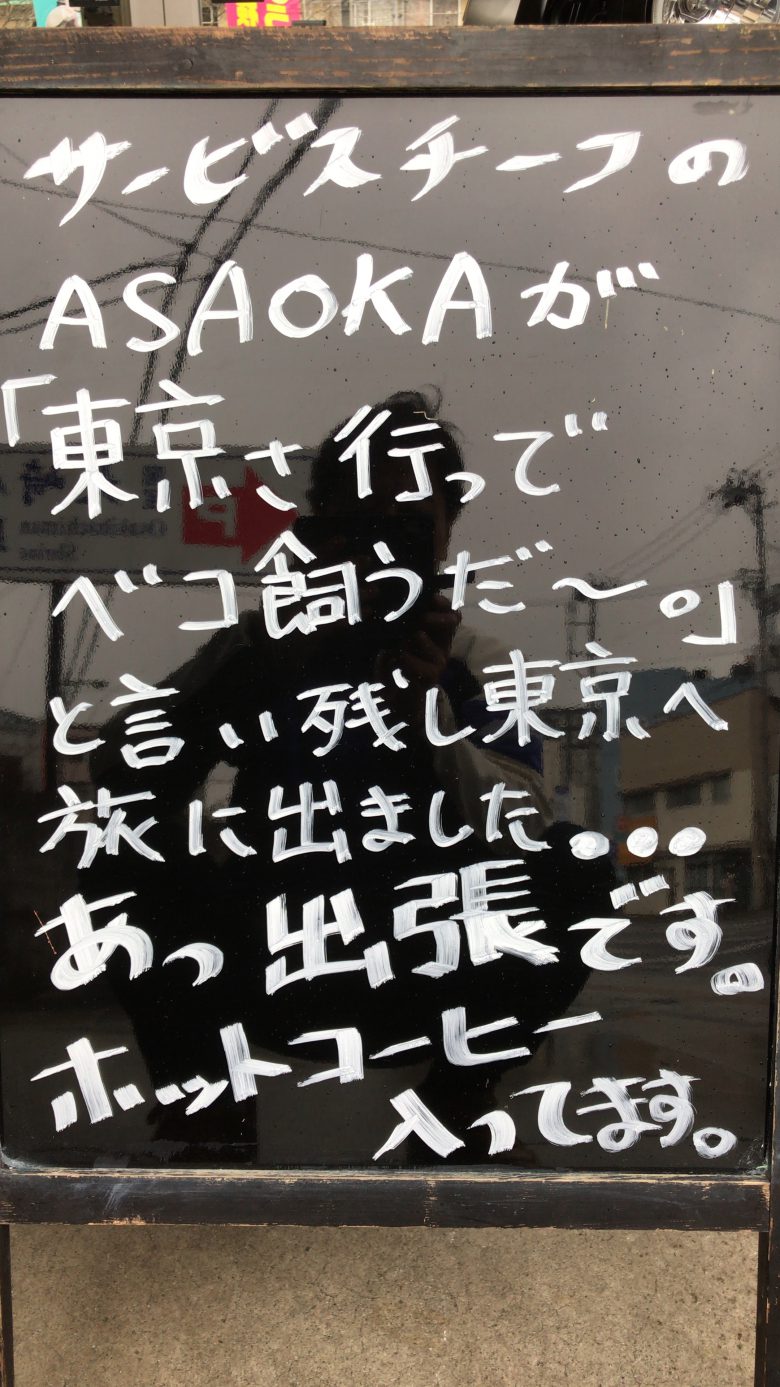 サービスチーフの
ASAOKAが
「東京さ行って
ベコ飼うだ〜。」
と言い残し東京へ
旅に出ました...
あっ出張です。
ホットコーヒー
入ってます。